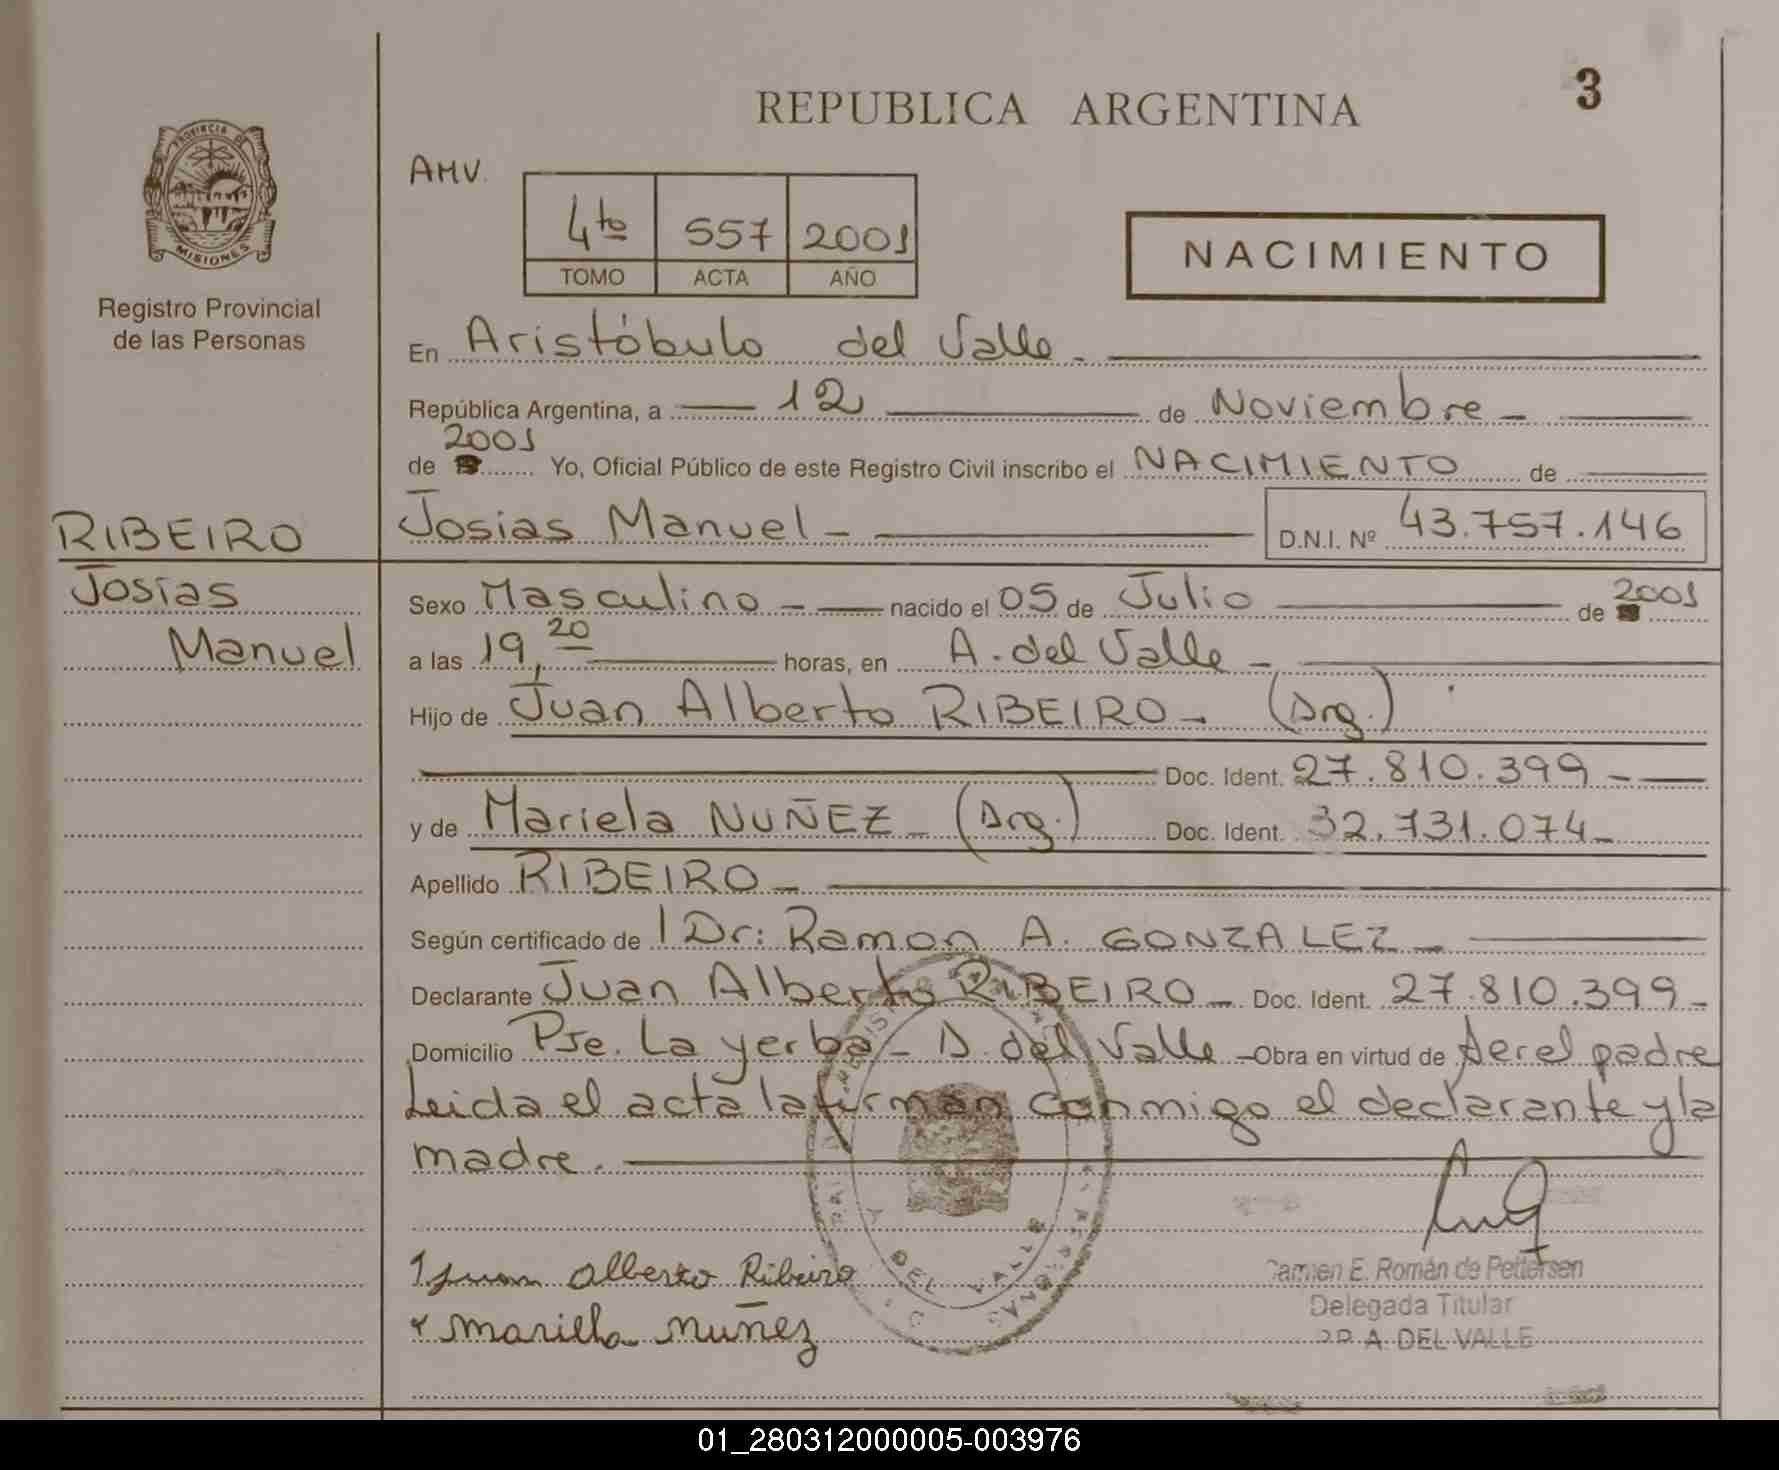 REPUBLICA ARGENTINA
3
PROVINCIA DE
MISIONES
Registro Provincial
de las Personas
AMV.
4to 557 2001
TOMO ACTA AÑO
NACIMIENTO
En Aristóbulo del Valle.-
República Argentina, a 12 de Noviembre -
2001
de ........ Yo, Oficial Público de este Registro Civil inscribo el NACIMIENTO de
Josias Manuel - D.N.I. Nº 43.757.146
RIBEIRO
Josias
Manuel
Sexo Masculino - nacido el 05 de Julio de 2001
a las 19,20 horas, en A. del Valle -
Hijo de Juan Alberto RIBEIRO - (Arg.)
Doc. Ident. 27.810.399 -
y de Mariela NUÑEZ - (Arg.) Doc. Ident. 32.731.074 -
Apellido RIBEIRO -
Según certificado de l Dr: Ramon A. GONZALEZ -
Declarante Juan Alberto RIBEIRO - Doc. Ident. 27.810.399 -
Domicilio Pje. La yerba - A. del Valle - Obra en virtud de ser el padre
Leida el acta la firman conmigo el declarante y la
madre.
Juan Alberto Ribeiro
Mariella Nuñez
A. DEL VALLE
Carmen E. Román de Pettersen
Delegada Titular
A. DEL VALLE
01_280312000005-003976